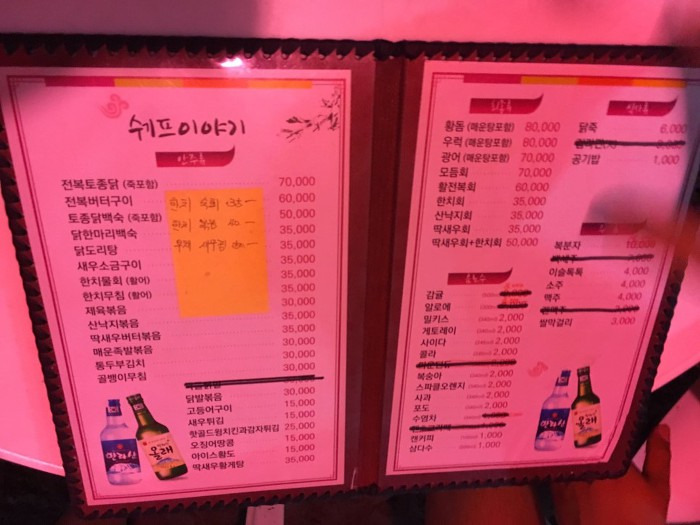 쉐프이야기
안주류
전복토종닭 (죽포함) 70,000
전복버터구이 60,000
토종닭백숙 (죽포함) 50,000
닭한마리백숙 35,000
닭도리탕 35,000
새우소금구이 35,000
한치물회 (활어) 35,000
한치무침 (활어) 35,000
제육볶음 30,000
산낙지볶음 35,000
딱새우버터볶음 35,000
매운족발볶음 30,000
통두부김치 30,000
골뱅이무침 30,000
닭발볶음 30,000
고등어구이 15,000
새우튀김 15,000
핫골드윙치킨과감자튀김 25,000
오징어땅콩 15,000
아이스황도 15,000
딱새우황게탕 35,000
한라산
올래
황돔 (매운탕포함) 80,000
우럭 (매운탕포함) 80,000
광어 (매운탕포함) 70,000
모듬회 70,000
활전복회 60,000
한치회 35,000
산낙지회 35,000
딱새우회 35,000
딱새우회+한치회 50,000
식사류
닭죽 6,000
공기밥 1,000
음료수
감귤
알로에
밀키스 2,000
게토레이 2,000
사이다 2,000
콜라 2,000
복숭아 2,000
스파클오렌지 2,000
사과 2,000
포도 2,000
수염차
캔커피 1,000
삼다수 1,000
복분자 10,000
이슬톡톡 4,000
소주 4,000
맥주 4,000
쌀막걸리 3,000
한라산
올래